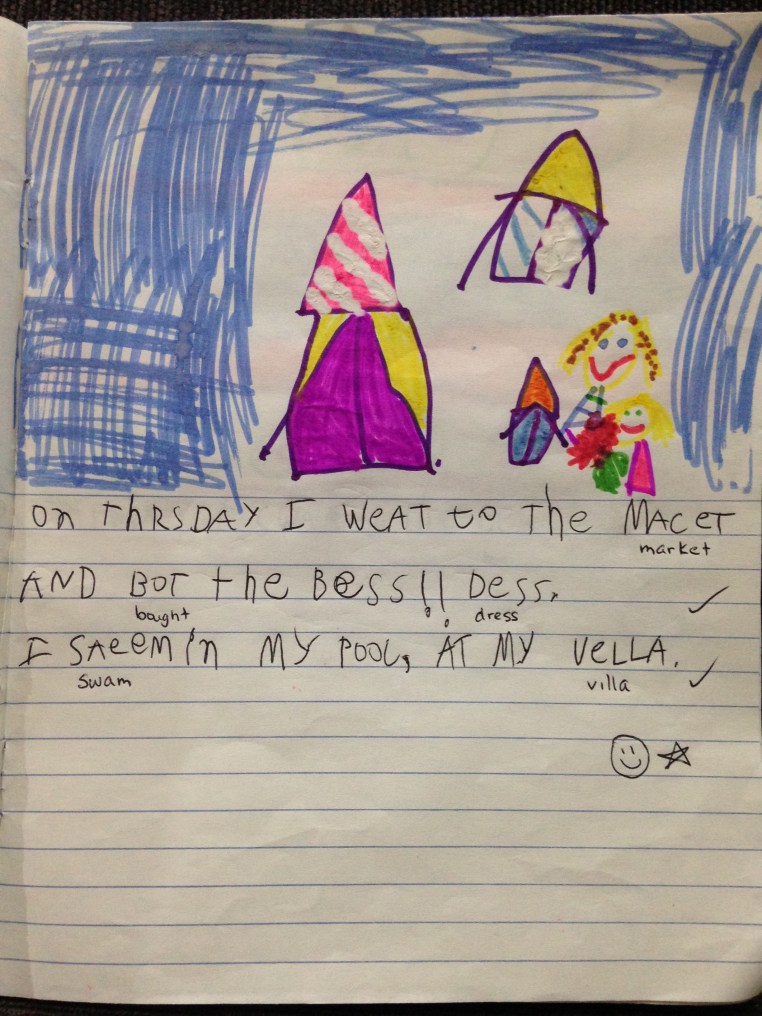 On ThRSDAY I WeAT to The MACeT
market
AND BOT the Bess!! Dess.
bought dress
I SAeem in MY POOL, AT MY VeLLA.
Swam villa